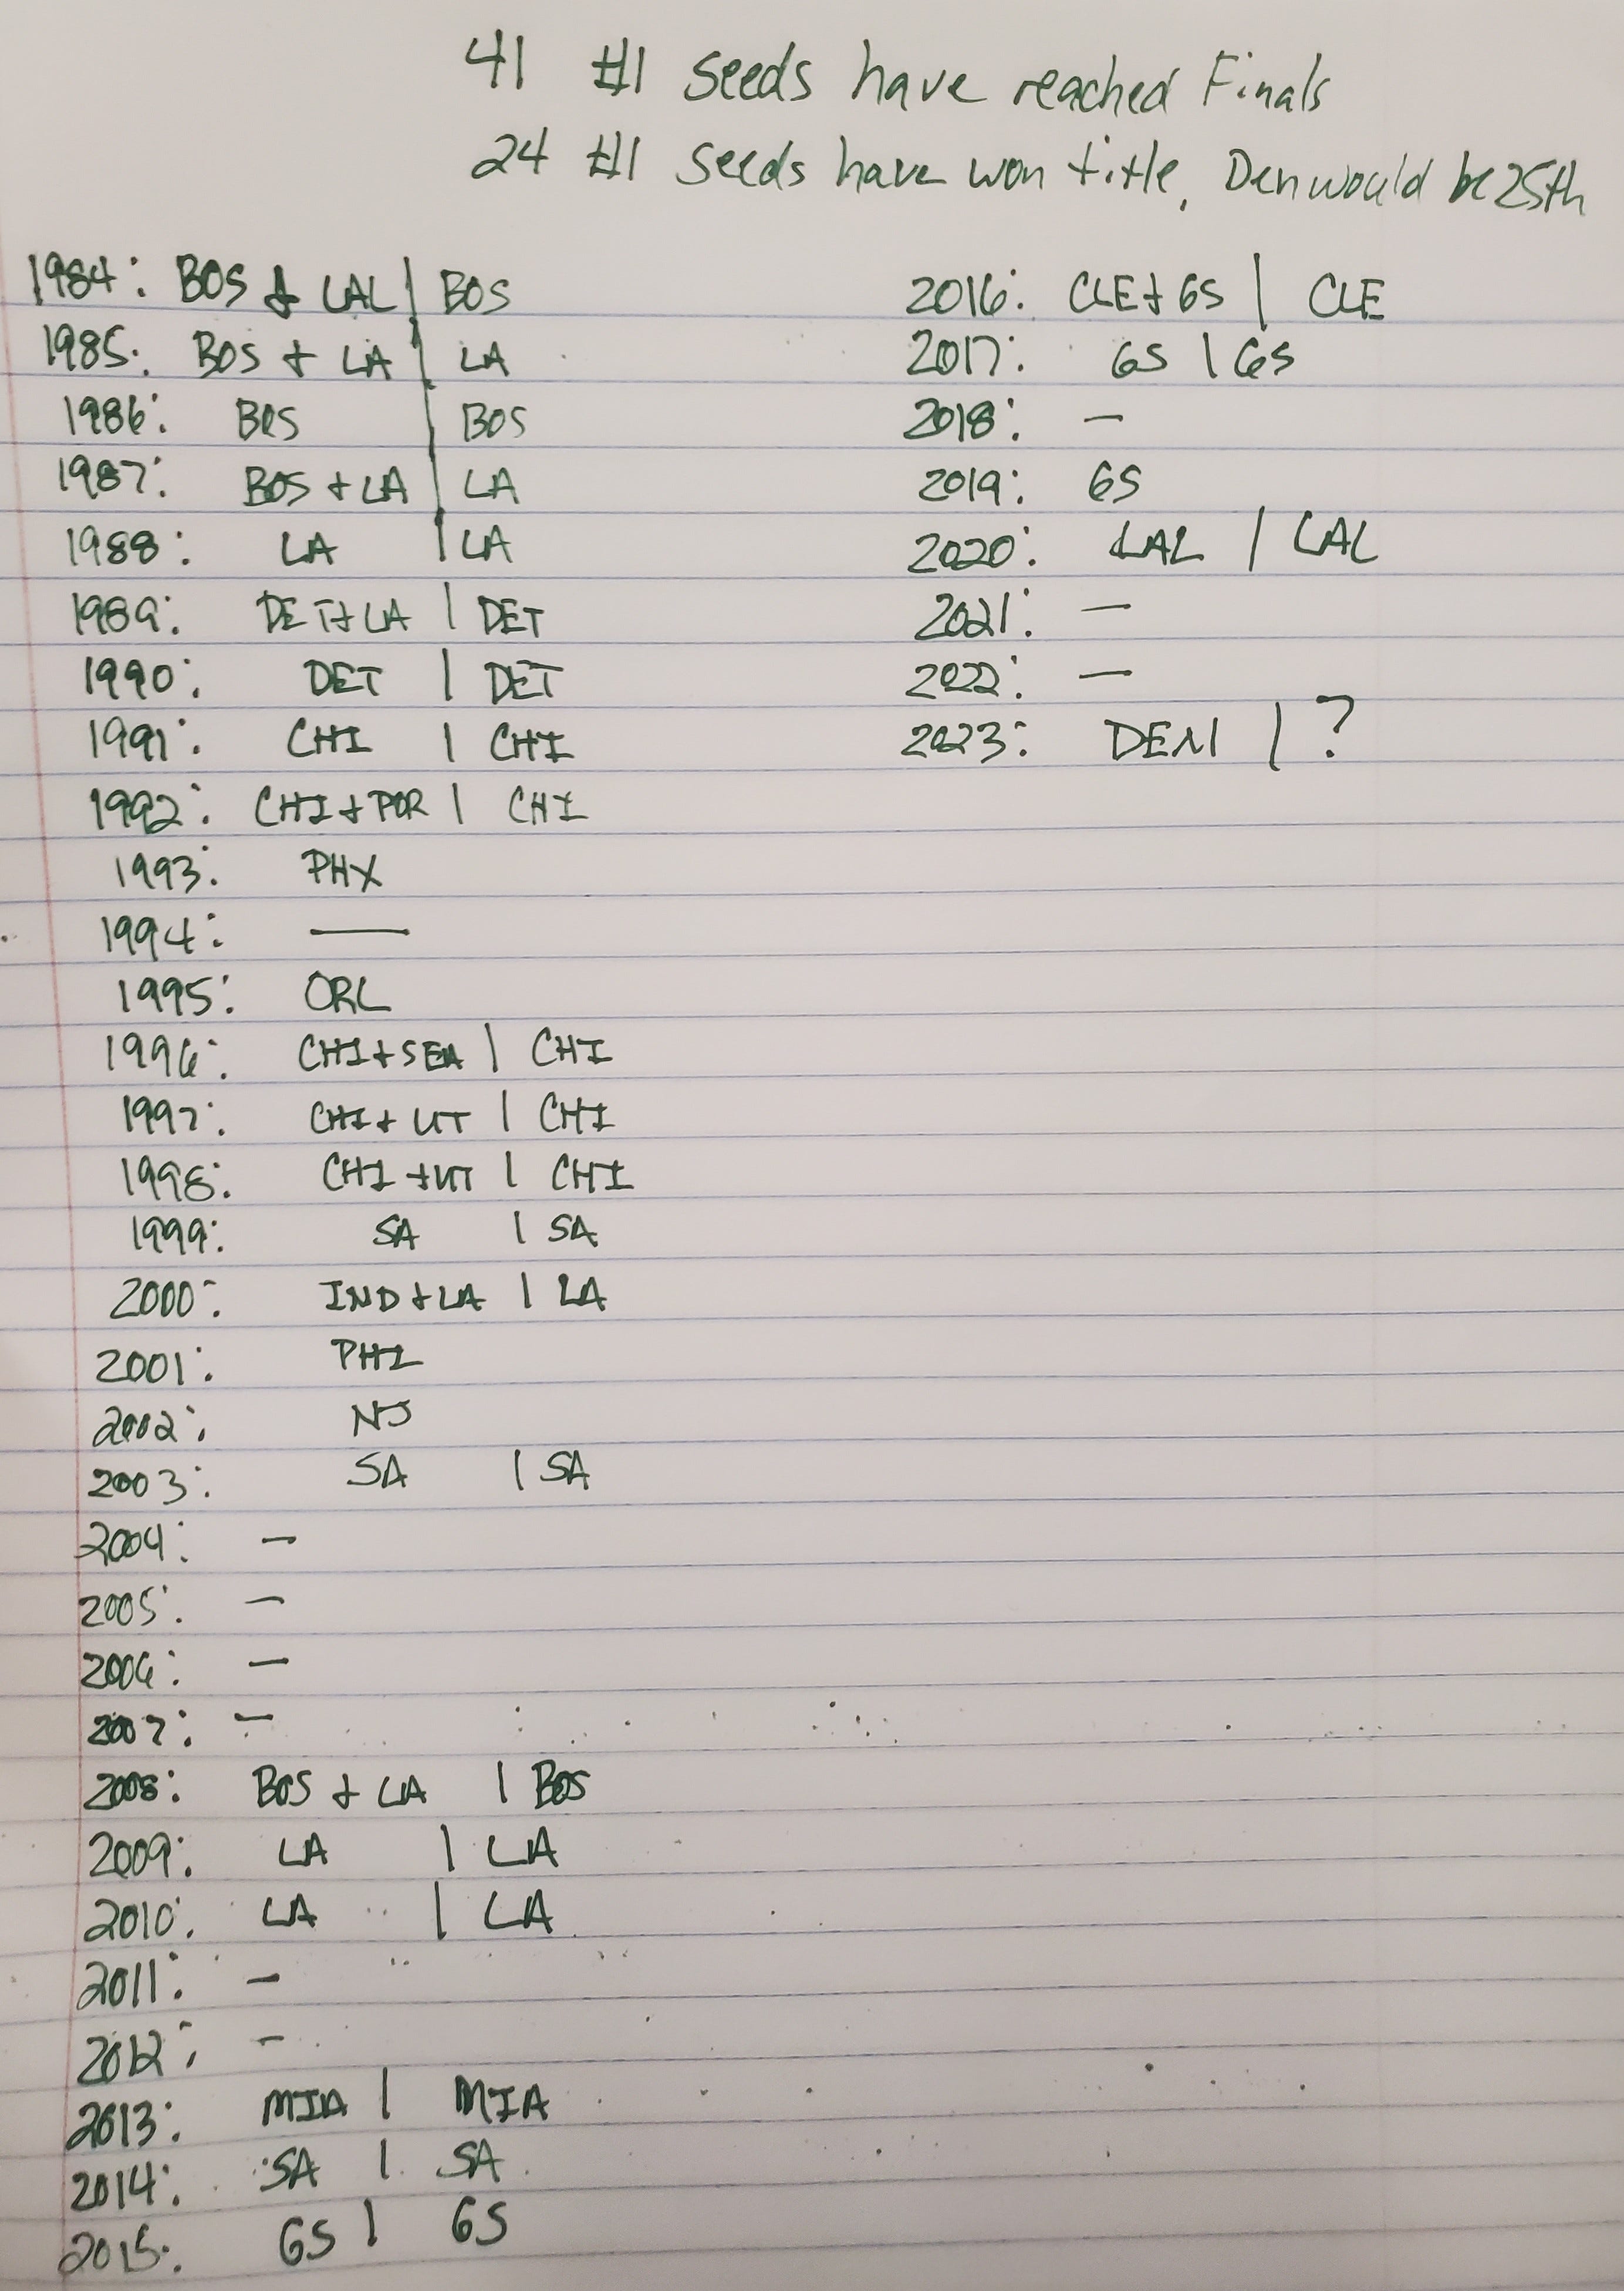 41 #1 seeds have reached Finals
24 #1 seeds have won title, Den would be 25th
1984: BOS & LAL | BOS
1985: BOS + LA | LA
1986: BOS | BOS
1987: BOS + LA | LA
1988: LA | LA
1989: DET + LA | DET
1990: DET | DET
1991: CHI | CHI
1992: CHI + POR | CHI
1993: PHX
1994: —
1995: ORL
1996: CHI + SEA | CHI
1997: CHI + UT | CHI
1998: CHI + UT | CHI
1999: SA | SA
2000: IND + LA | LA
2001: PHI
2002: NJ
2003: SA | SA
2004: —
2005: —
2006: —
2007: —
2008: BOS + LA | BOS
2009: LA | LA
2010: LA | LA
2011: —
2012: —
2013: MIA | MIA
2014: SA | SA
2015: GS | GS
2016: CLE + GS | CLE
2017: GS | GS
2018: —
2019: GS
2020: LAL | LAL
2021: —
2022: —
2023: DEN | ?